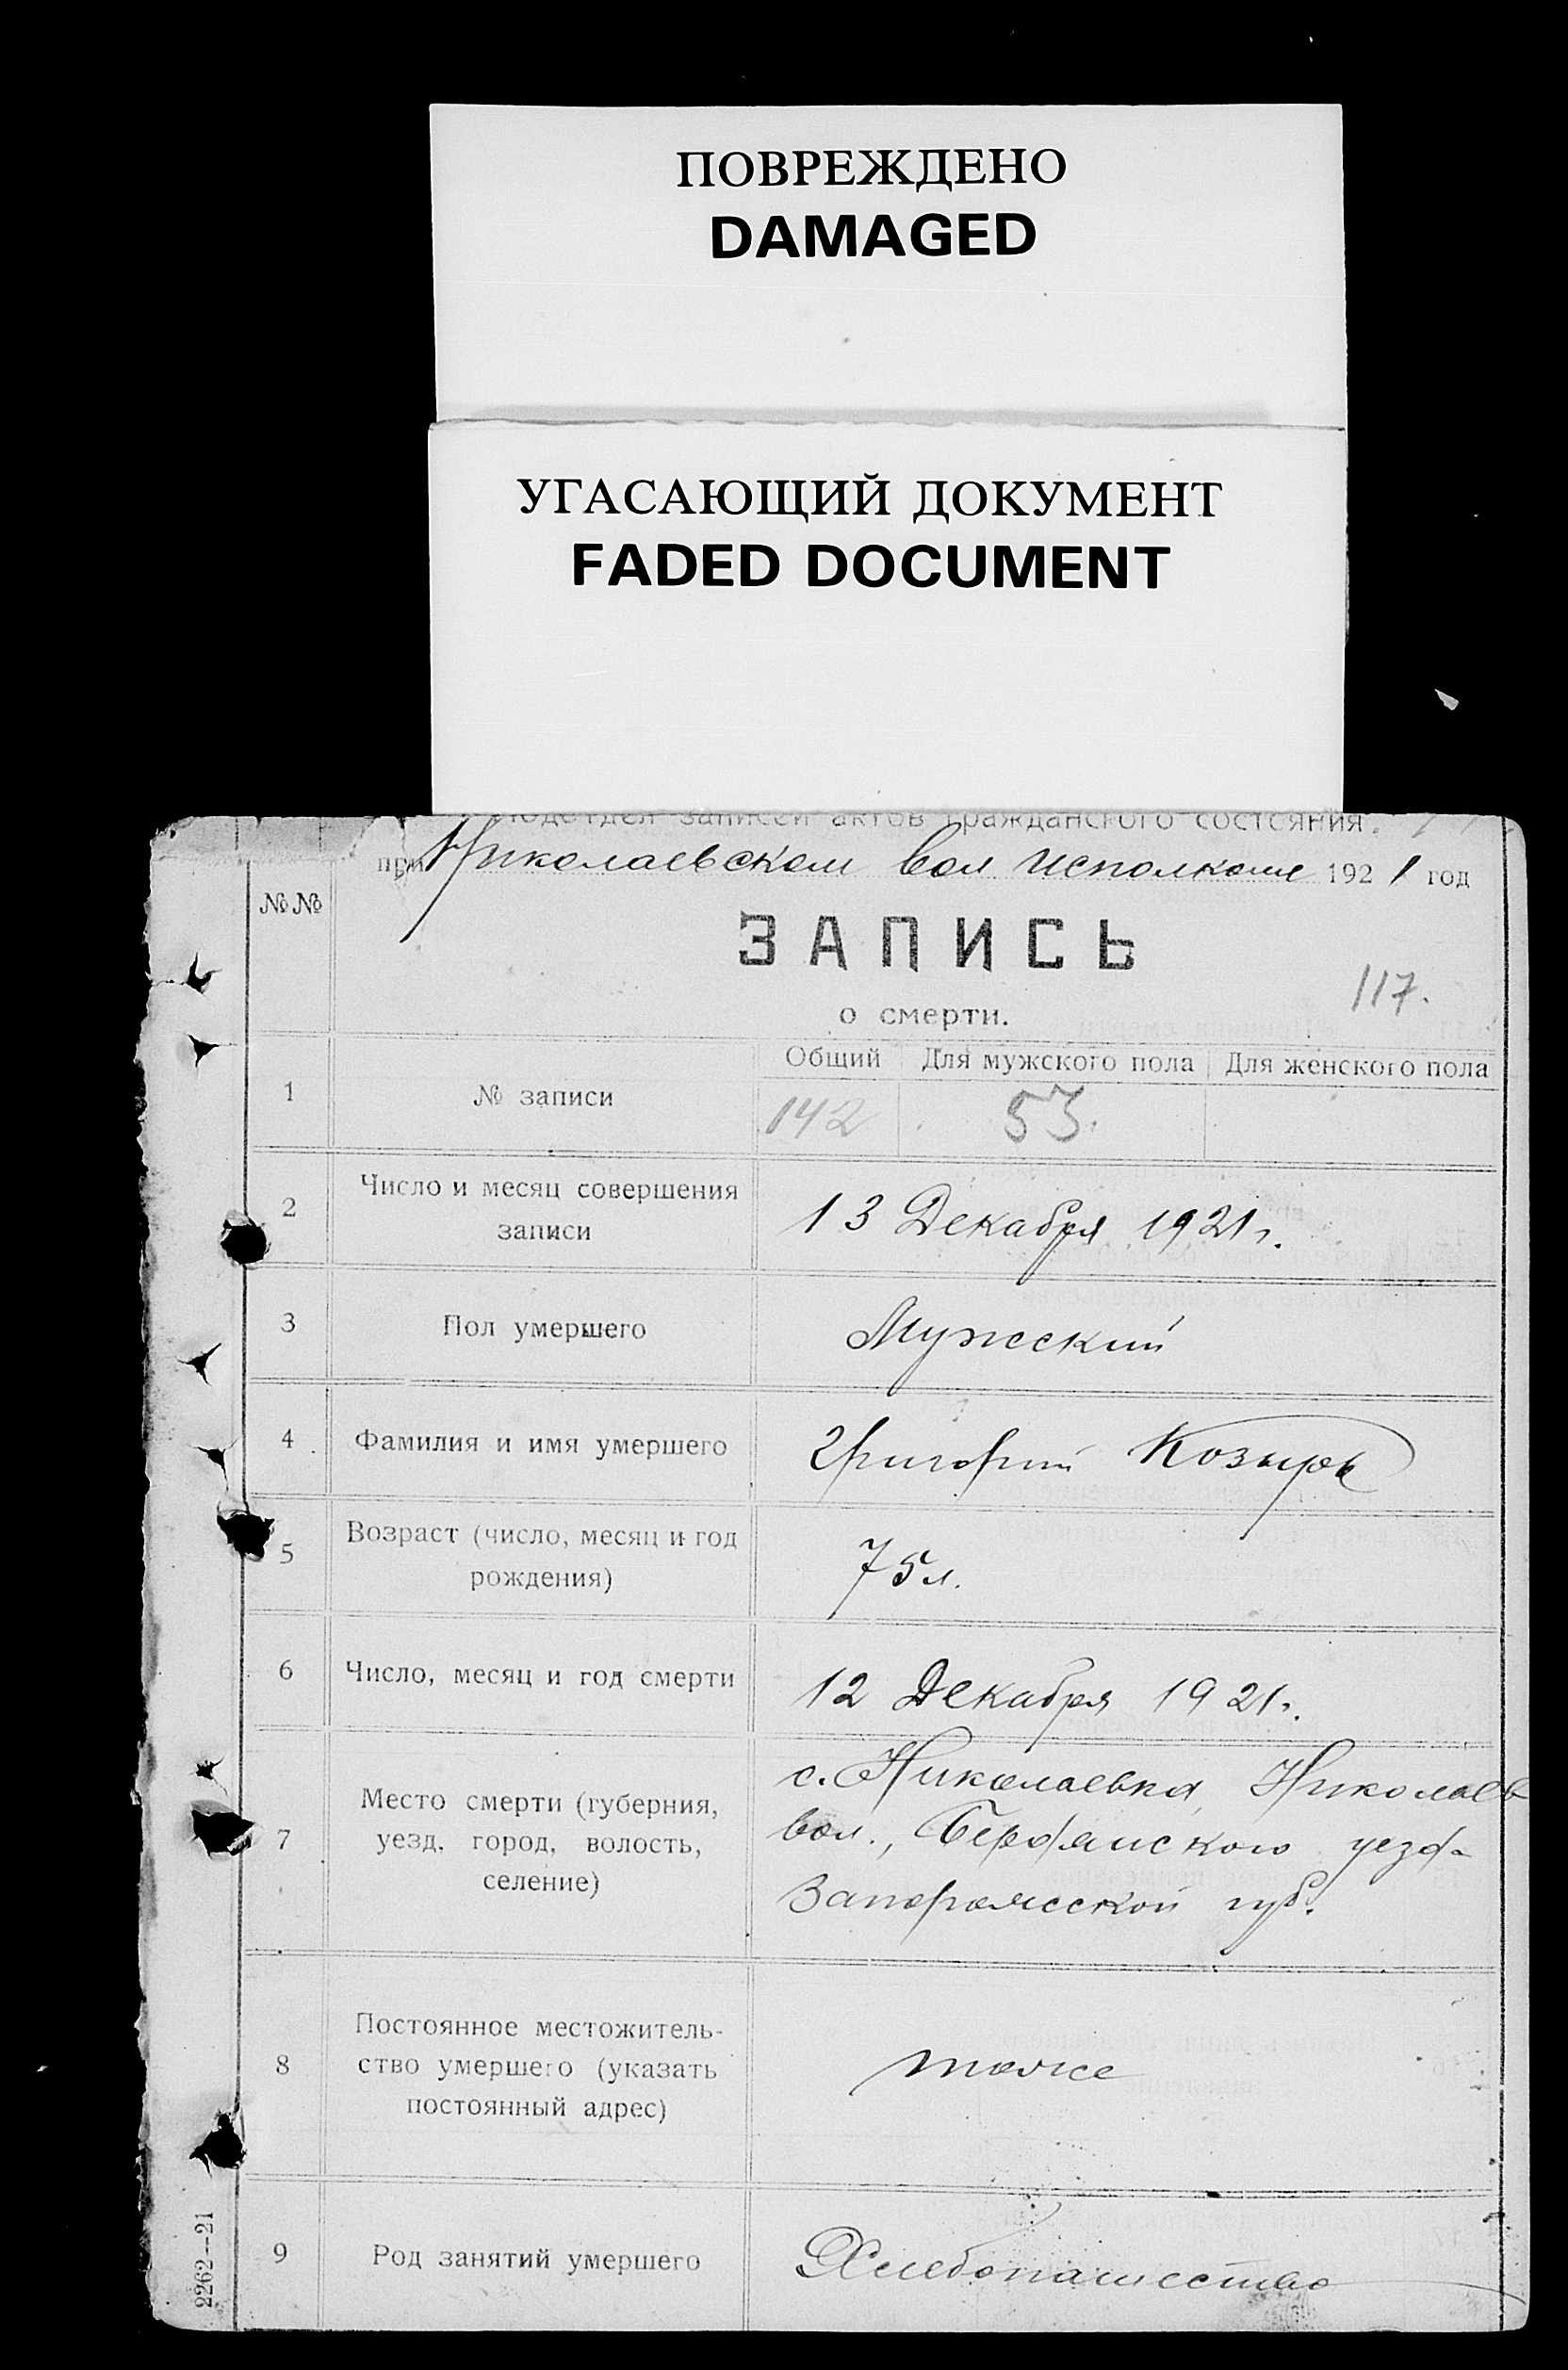 ПОВРЕЖДЕНО
DAMAGED
УГАСАЮЩИЙ ДОКУМЕНТ
FADED DOCUMENT
Подотдел записей актов гражданского состояния.
при Николаевском вол исполкоме 1921 год
№№
ЗАПИСЬ
117.
о смерти.
Общий Для мужского пола Для женского пола
1 № записи 142 53.
2 Число и месяц совершения
записи
13 Декабря 1921 г.
3 Пол умершего Мужеский
4 Фамилия и имя умершего Григорий Козырь
5 Возраст (число, месяц и год
рождения)
75 л.
6 Число, месяц и год смерти 12 Декабря 1921 г.
7 Место смерти (губерния,
уезд, город, волость,
селение)
с. Николаевка, Николаев
вол., Бердянского уезд.
Запорожсской губ.
8 Постоянное местожитель-
ство умершего (указать
постоянный адрес)
тоже
9 Род занятий умершего Хлебопашество
2262—21